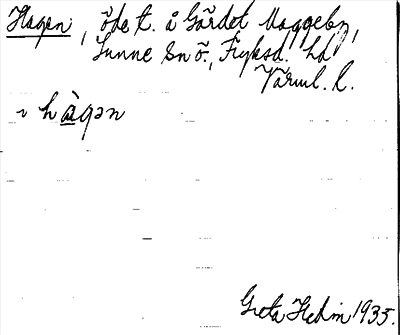 Hagen, öde t. å Gårdet Maggeby,
Sunne sn ö., Fryksd. hd
Värml. l.
~ hàgən
Greta Hedin 1935.